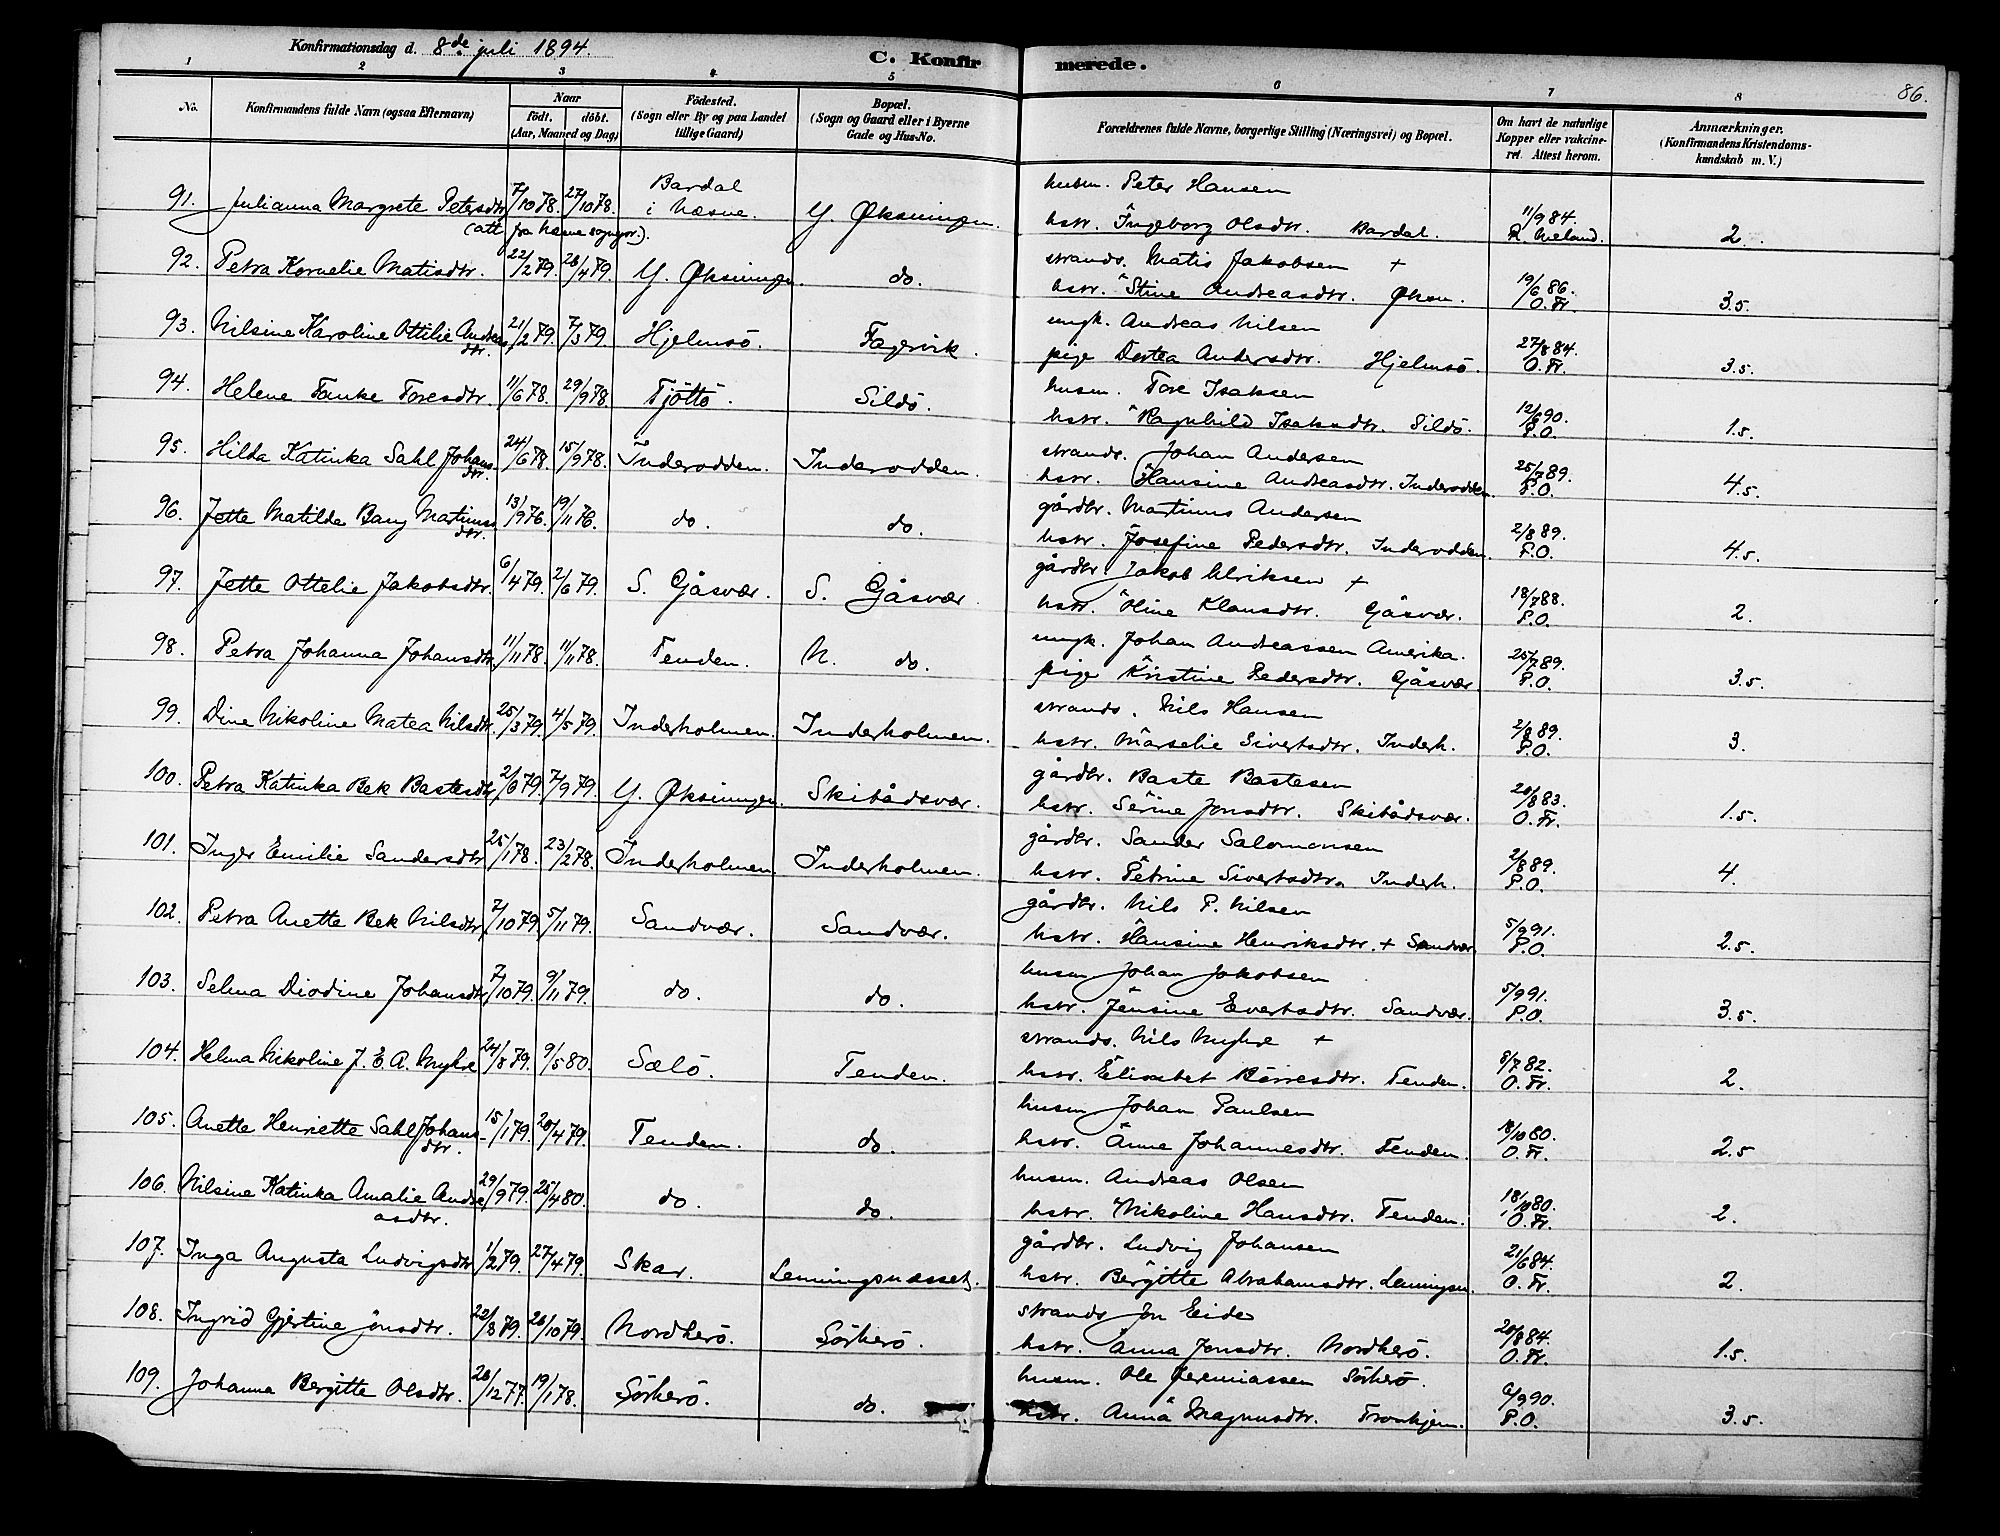 Konfirmationsdag d. 8de juli 1894.
C. Konfirmerede.
86.
1 2 3 4 5 6 7 8
No. Konfirmandens fulde Navn (ogsaa Efternavn) Naar født. døbt. (Aar, Maaned og Dag) Fødested. (Sogn eller By og paa Landet tillige Gaard) Bopæl. (Sogn og Gaard eller i Byerne Gade og Hus-No. Forældrenes fulde Navne, borgerlige Stilling (Næringsvei) og Bopæl. Om havt de naturlige Kopper eller vakcineret. Attest herom. Anmærkninger. (Konfirmandens Kristendomskundskab m. V.)
91. Julianna Margrete Petersdtr 7/10 78. 27/10 78. Bardal i Næsne. Y. Øksningen. husm. Peter Hansen
(att fra Næsne sognepr.). hstr. Ingeborg Olsdtr. Bardal. 11/9 84. 2.
92. Petra Kornelie Matisdtr. 22/2 79. 26/4 79. Y. Øksningen. do. strands. Matis Jakobsen +
hstr. Stine Andreasdtr. Øksn. 19/6 86. O. Fr. 3.5.
93. Nilsine Karoline Ottilie Andreasdtr. 21/2 79. 7/3 79. Hjelmsö. Fagervik. ungk. Andreas Nilsen
pige Dortea Andersdtr. Hjelmsö. 27/8 84. O. Fr. 3.5.
94. Helene Tanke Toresdtr 11/6 78. 29/9 78. Tjöttö. Sildö. husm. Tore Isaksen
hstr. Ragnhild Isaksdtr. Sildö. 12/6 90. P.O. 1.5.
95. Hilda Katinka Sahl Johansdtr. 24/6 78. 15/9 78. Inderodden. Inderodden. strands. Johan Andersen
hstr. Hansine Andreasdtr. Inderodden. 25/7 89. P.O. 4.5.
96. Jette Matilda Bang Martinusdtr. 13/9 76. 19/11 76. do. do. gårdbr. Martinus Andersen
hstr. Josefine Pedersdtr. Inderodden. 2/8 89. P.O. 4.5.
97. Jette Ottelie Jakobsdtr. 6/4 79. 2/6 79. S. Gåsvær. S. Gåsvær. gårdbr. Jakob Ulriksen +
hstr. Oline Klausdtr. Gåsvær. 18/7 88. P.O. 2.
98. Petra Johanna Johansdtr. 11/11 78. 11/11 78. Tenden. N. do. ungk. Johan Andreassen Amerika.
pige Kristine Pedersdtr. Gåsvær. 25/7 89. P.O. 3.5.
99. Dine Nikoline Matea Nilsdtr. 25/3 79. 4/5 79. Inderholmen. Inderholmen. strands. Nils Hansen
hstr. Marselie Sivertsdtr. Inderh. 2/8 89. P.O. 3.
100. Petra Katinka Bek Bastesdtr 2/6 79. 7/9 79. Y. Øksningen. Skibådsvær. gårdbr. Baste Bastesen
hstr. Serine Jonsdtr. Skibådsvær. 20/8 83. O. Fr. 1.5.
101. Inger Emilie Sandersdtr 25/1 78. 23/2 78. Inderholmen. Inderholmen. gårdbr. Sander Salomonsen
hstr. Petrine Sivertsdtr. Inderh. 2/8 89. P.O. 4.
102. Petra Anette Bek Nilsdtr 7/10 79. 5/11 79. Sandvær. Sandvær. gårdbr. Nils P. Nilsen
hstr. Hansine Henriksdtr. + Sandvær. 5/9 91. P.O. 2.5.
103. Selma Diodine Johansdtr 7/10 79. 9/11 79. do. do. husm Johan Jakobsen
hstr. Jensine Evertsdtr. Sandvær. 5/9 91. P.O. 3.5.
104. Helma Nikoline J. E. A. Myhre 24/8 79. 9/5 80. Sælö. Tenden. strands. Nils Myhre +
hstr. Elisabet Börresdtr. Tenden. 8/7 82. O. Fr. 2.
105. Anette Henriette Sahl Johansdtr. 15/1 79. 20/4 79. Tenden. do. husm Johan Paulsen
hstr. Anne Johannesdtr. Tenden. 18/10 80. O. Fr. 2.5
106. Nilsine Katinka Amalie Andreasdtr. 29/9 79. 25/4 80. do. do. husm. Andreas Olsen
hstr. Nikoline Hansdtr. Tenden. 18/10 80. O. Fr. 2.
107. Inga Augusta Ludvigsdtr 1/2 79. 27/4 79. Skar. Lenningsnæsset. gårdbr. Ludvig Johansen
hstr. Bergitte Abrahamsdtr. Lenningsn. 21/6 84. O. Fr. 2.
108. Ingrid Gjertine Jonsdtr. 22/8 79. 26/10 79. Nordherö. Sörherö. strands Jon Eide
hstr. Anna Jonsdtr. Nordherö. 20/8 84. O. Fr. 1.5.
109. Johanna Bergitte Olsdtr. 26/12 77. 19/1 78. Sörherö. do. husm. Ole Jeremiassen Sörherö.
hstr. Anna Magnusdtr. Tronhjem. 6/9 90. P.O. 3.5.